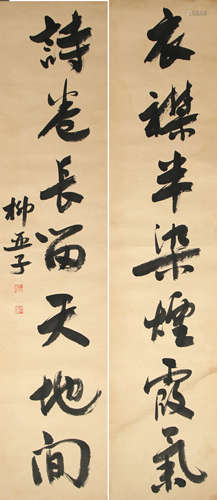 衣襟半染煙霞氣
詩卷長留天地間
柳亞子